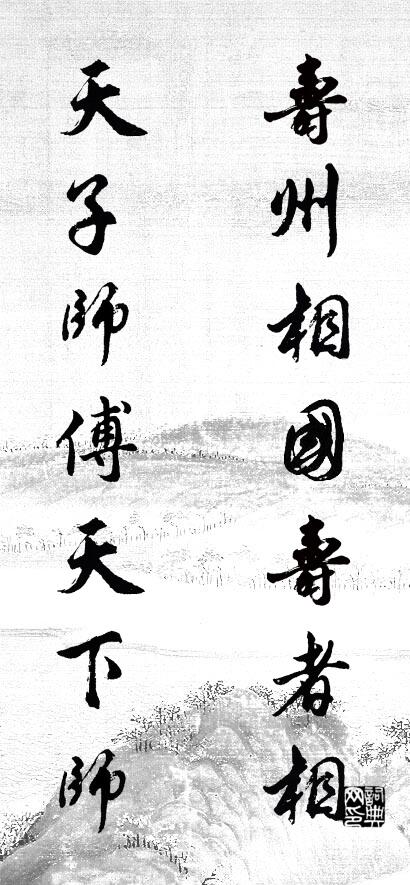 壽州相國壽者相
天子師傅天下師
詞典網